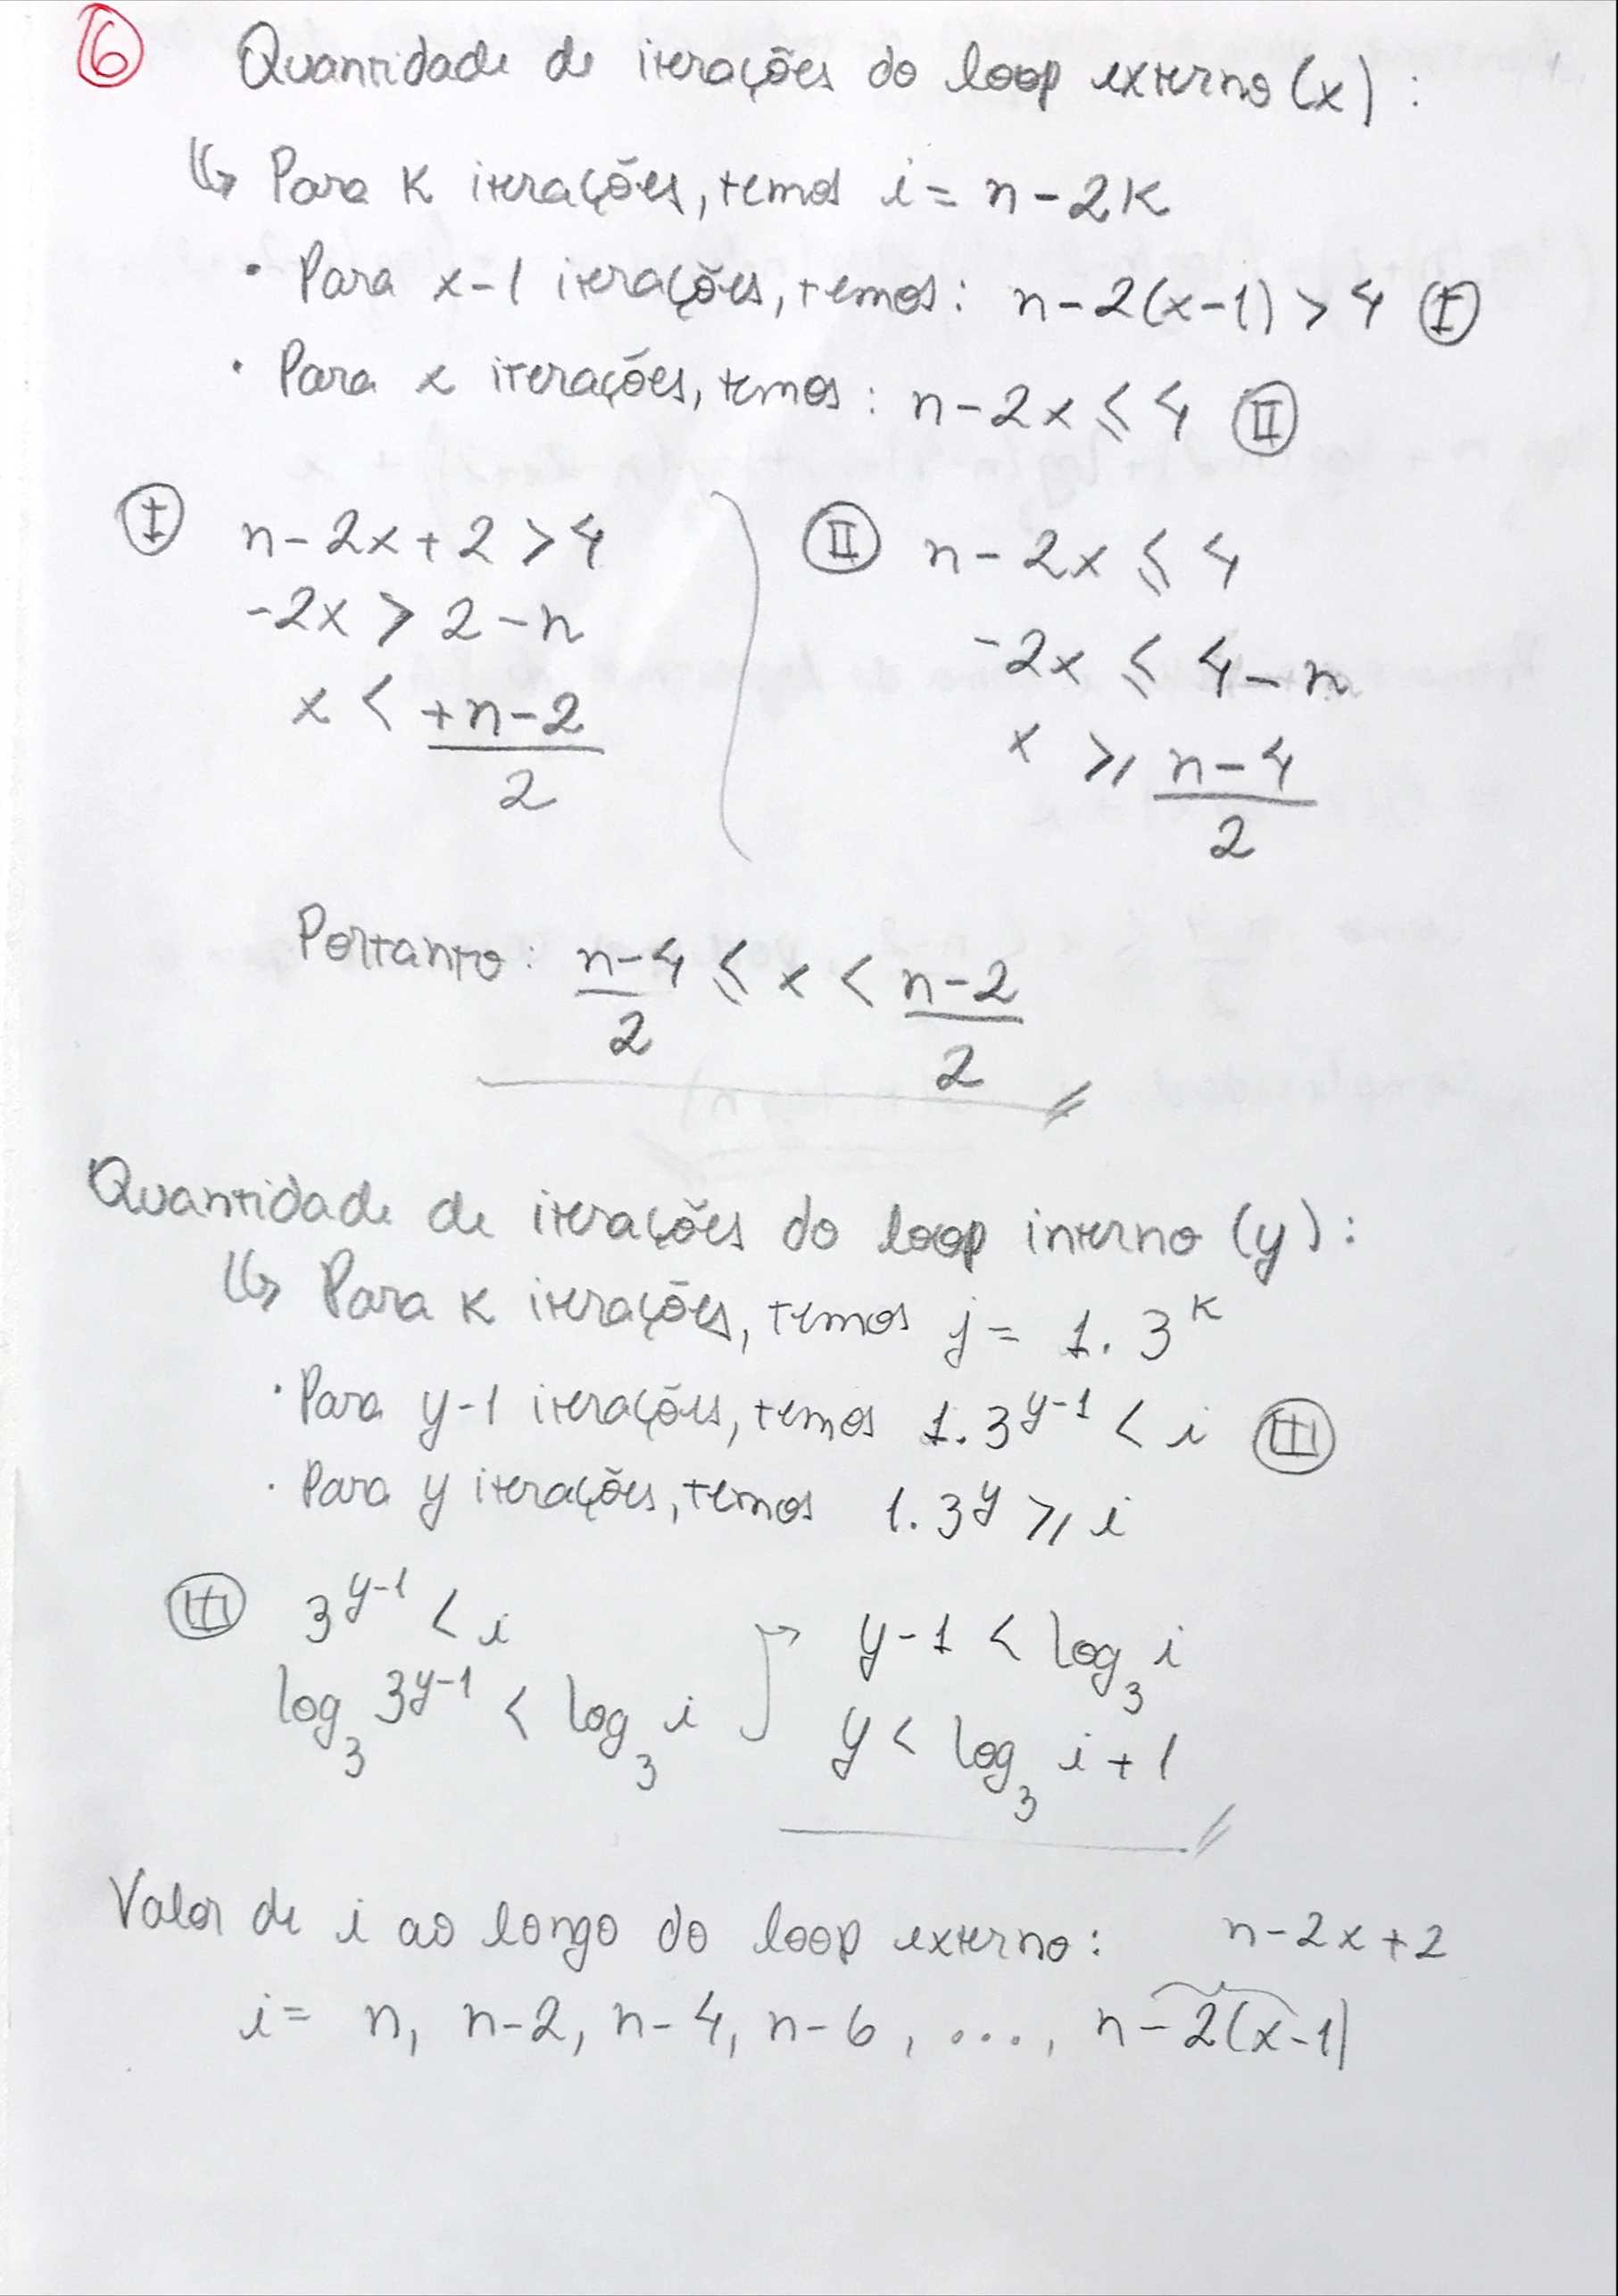 6 Quantidade de iterações do loop externo (x) :
↳ Para K iterações, temos i = n - 2K
• Para x-1 iterações, temos: n - 2(x-1) > 4 (I)
• Para x iterações, temos : n - 2x ≤ 4 (II)
(I) n - 2x + 2 > 4
-2x > 2 - n
x < +n - 2
2
(II) n - 2x ≤ 4
-2x ≤ 4 - n
x ≥ n - 4
2
Portanto : n-4 ≤ x < n-2
2 2
Quantidade de iterações do loop interno (y) :
↳ Para K iterações, temos j = 1. 3^K
• Para y-1 iterações, temos 1. 3^(y-1) < i (III)
• Para y iterações, temos 1. 3^y ≥ i
(III) 3^(y-1) < i
log₃ 3^(y-1) < log₃ i
y-1 < log₃ i
y < log₃ i + 1
Valor de i ao longo do loop externo : n - 2x + 2
i = n, n-2, n-4, n-6, ..., n-2(x-1)